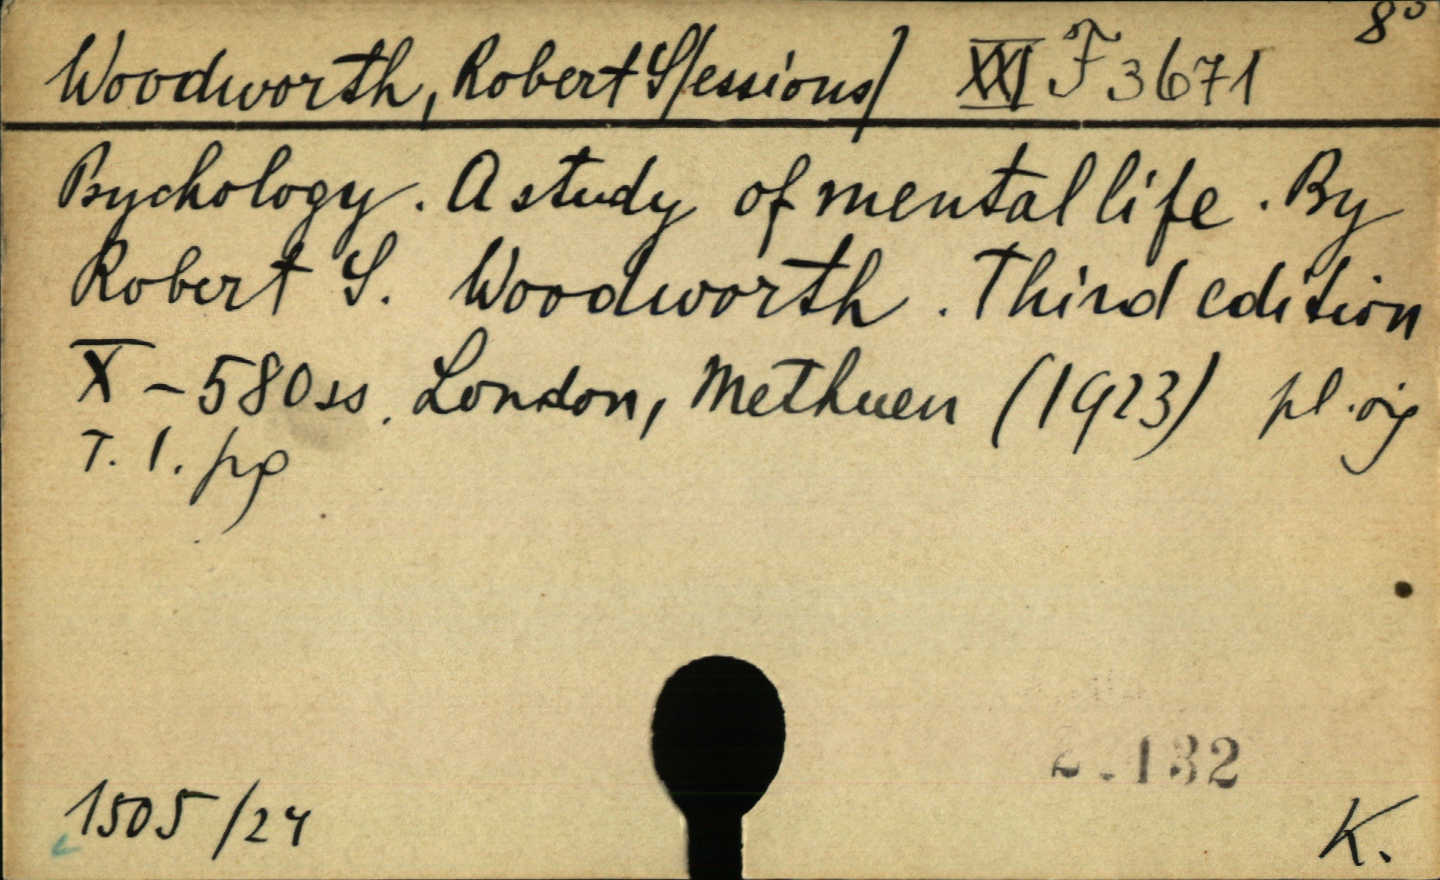 8°
Woodworth, Robert S/essions/ XXI F 3671
Psychology. A study of mental life. By
Robert S. Woodworth. Third edition
X - 580 ss. London, Methuen (1923) pł. oryg
T. 1. pg
132
1505/24
K.